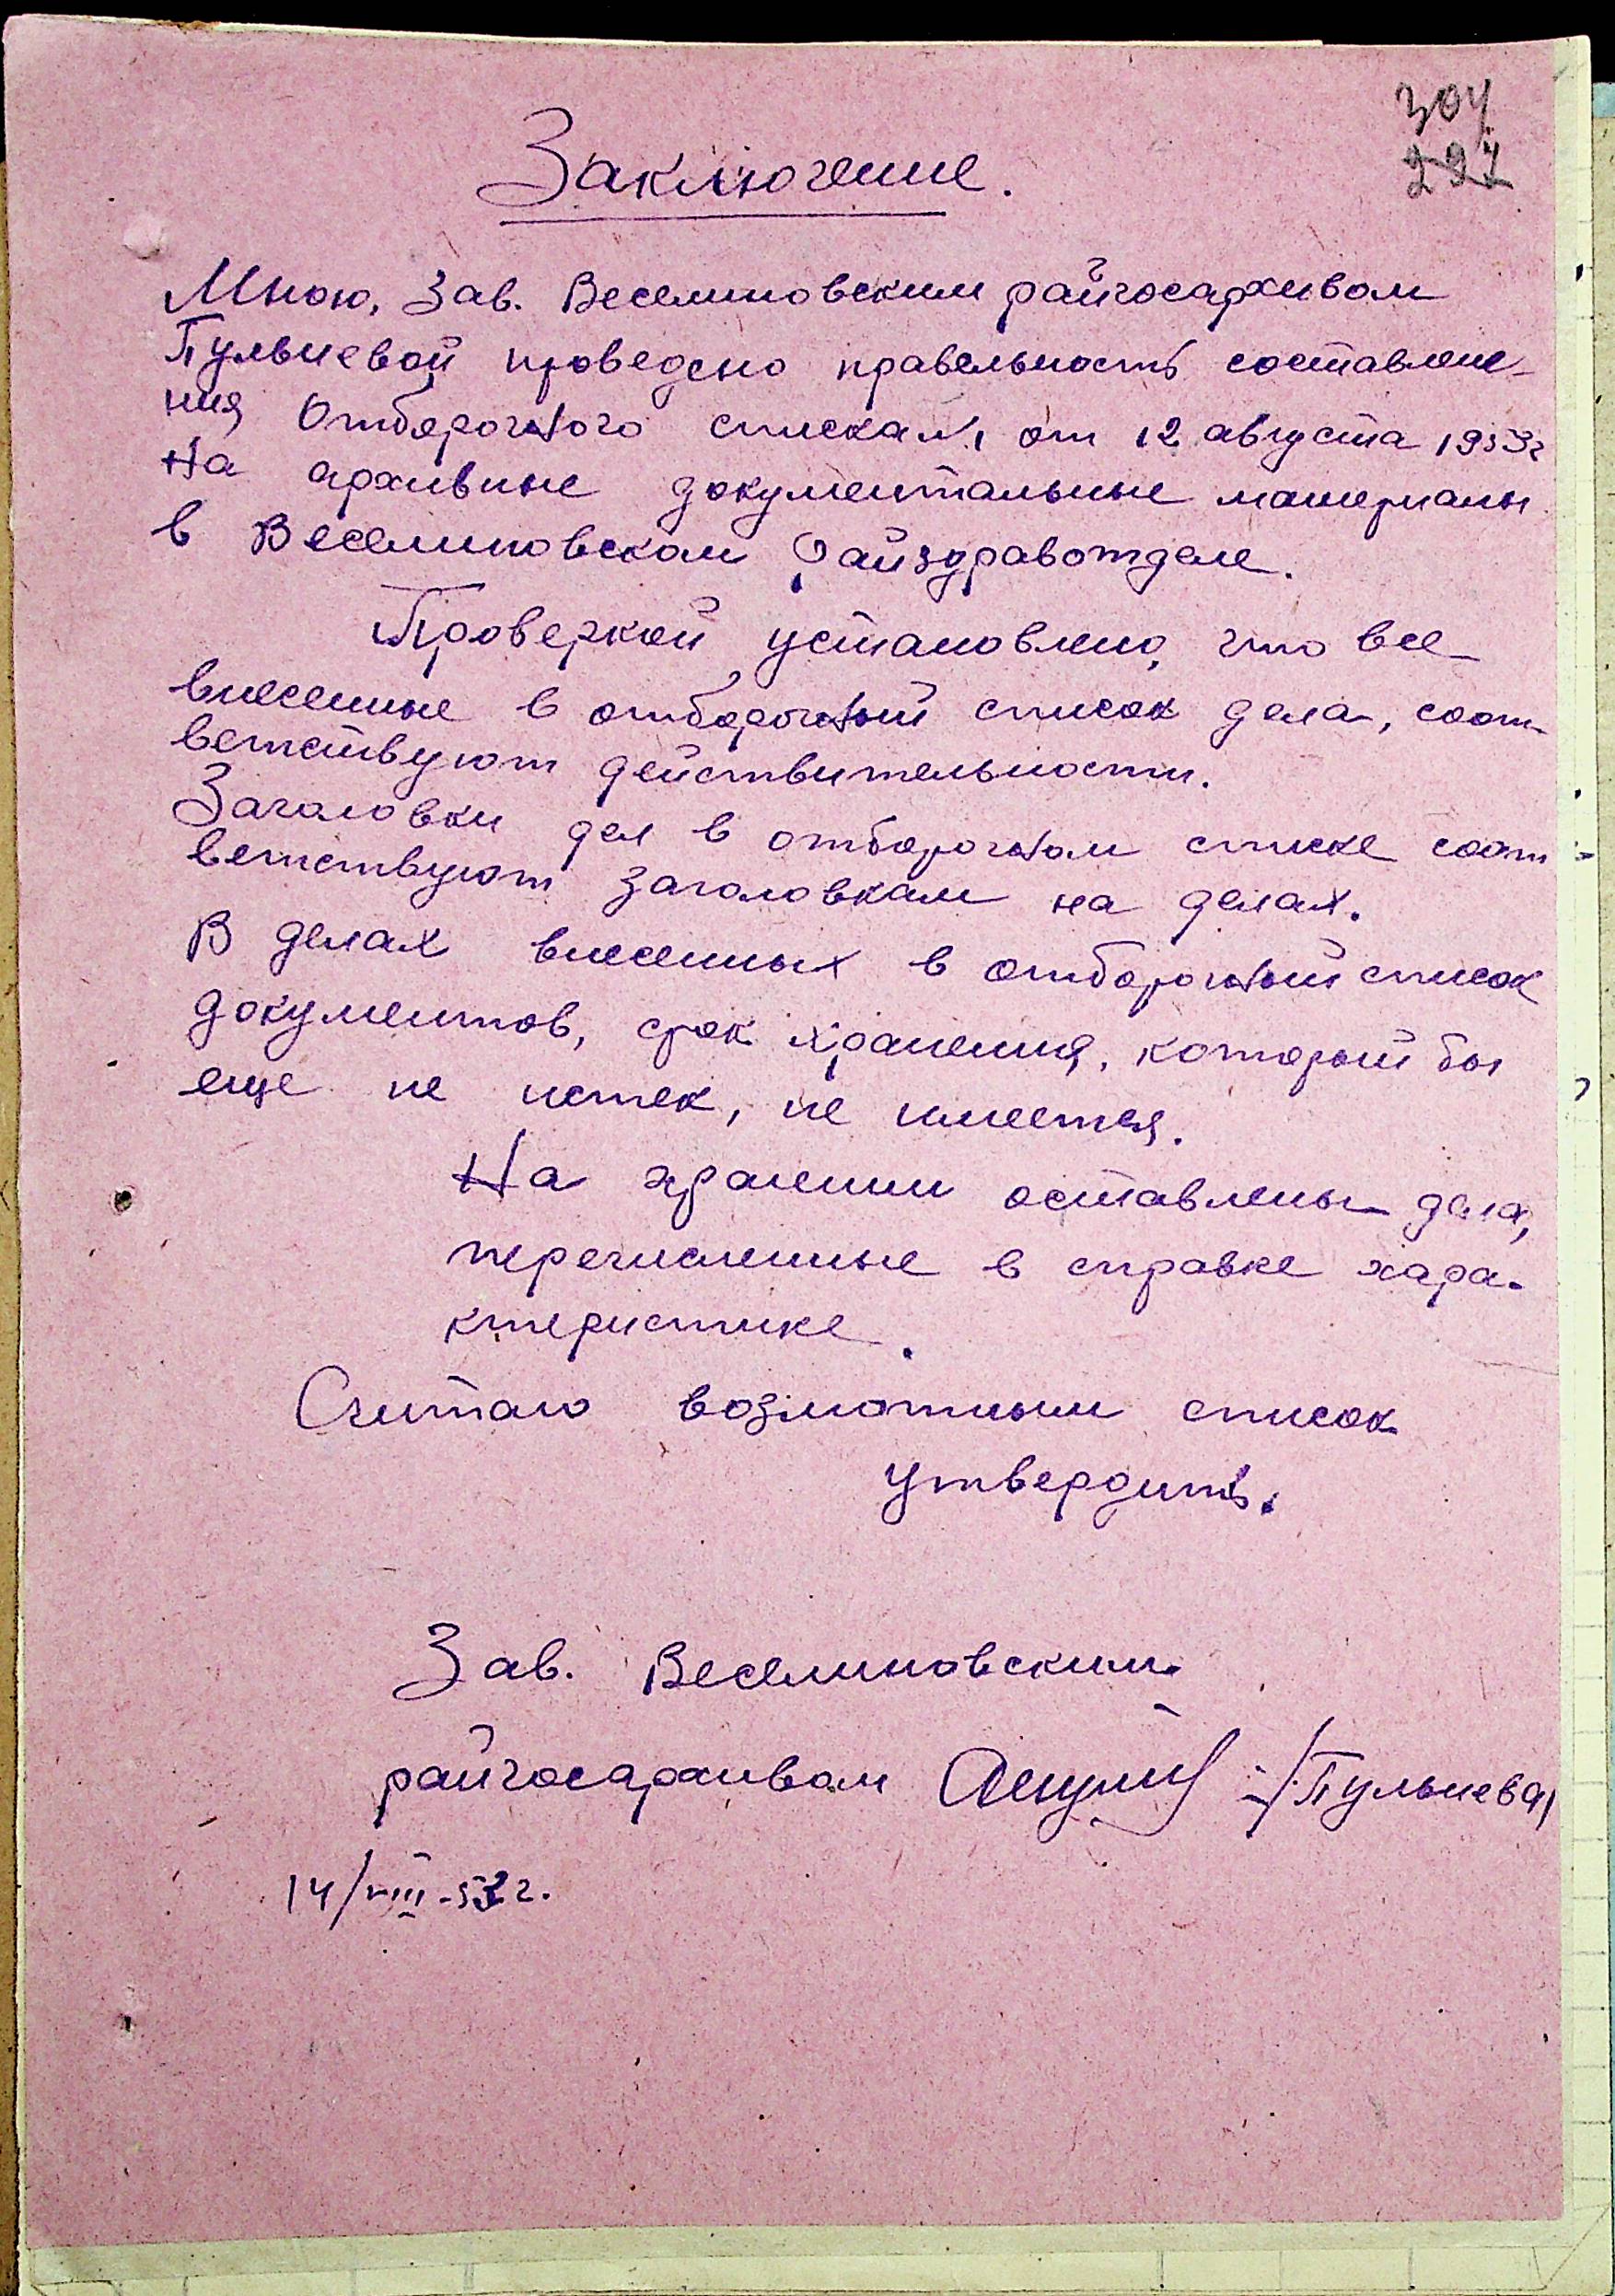 304
297
Заключение.
Мною, Зав. Веселиновским райгосархивом
Пульневой проведено правельность составлене-
ния отборочного списка №1 от 12 августа 1953г
на архивные документальные материалы
в Веселиновском Райздравотделе.
Проверкой установлено, что все
внесенные в отборочный список дела, соот-
ветствуют действительности.
Заголовки дел в отборочном списке соот-
ветствуют заголовкам на делах.
В делах внесенных в отборочный список
документов, срок хранения, который бы
еще не истек, не имеется.
На хранении оставлены дела,
перечисленные в справке хара-
ктеристике.
Считаю возможным список
утвердить.
Зав. Веселиновским
райгосархивом /Пульнева/
14/VIII-53г.